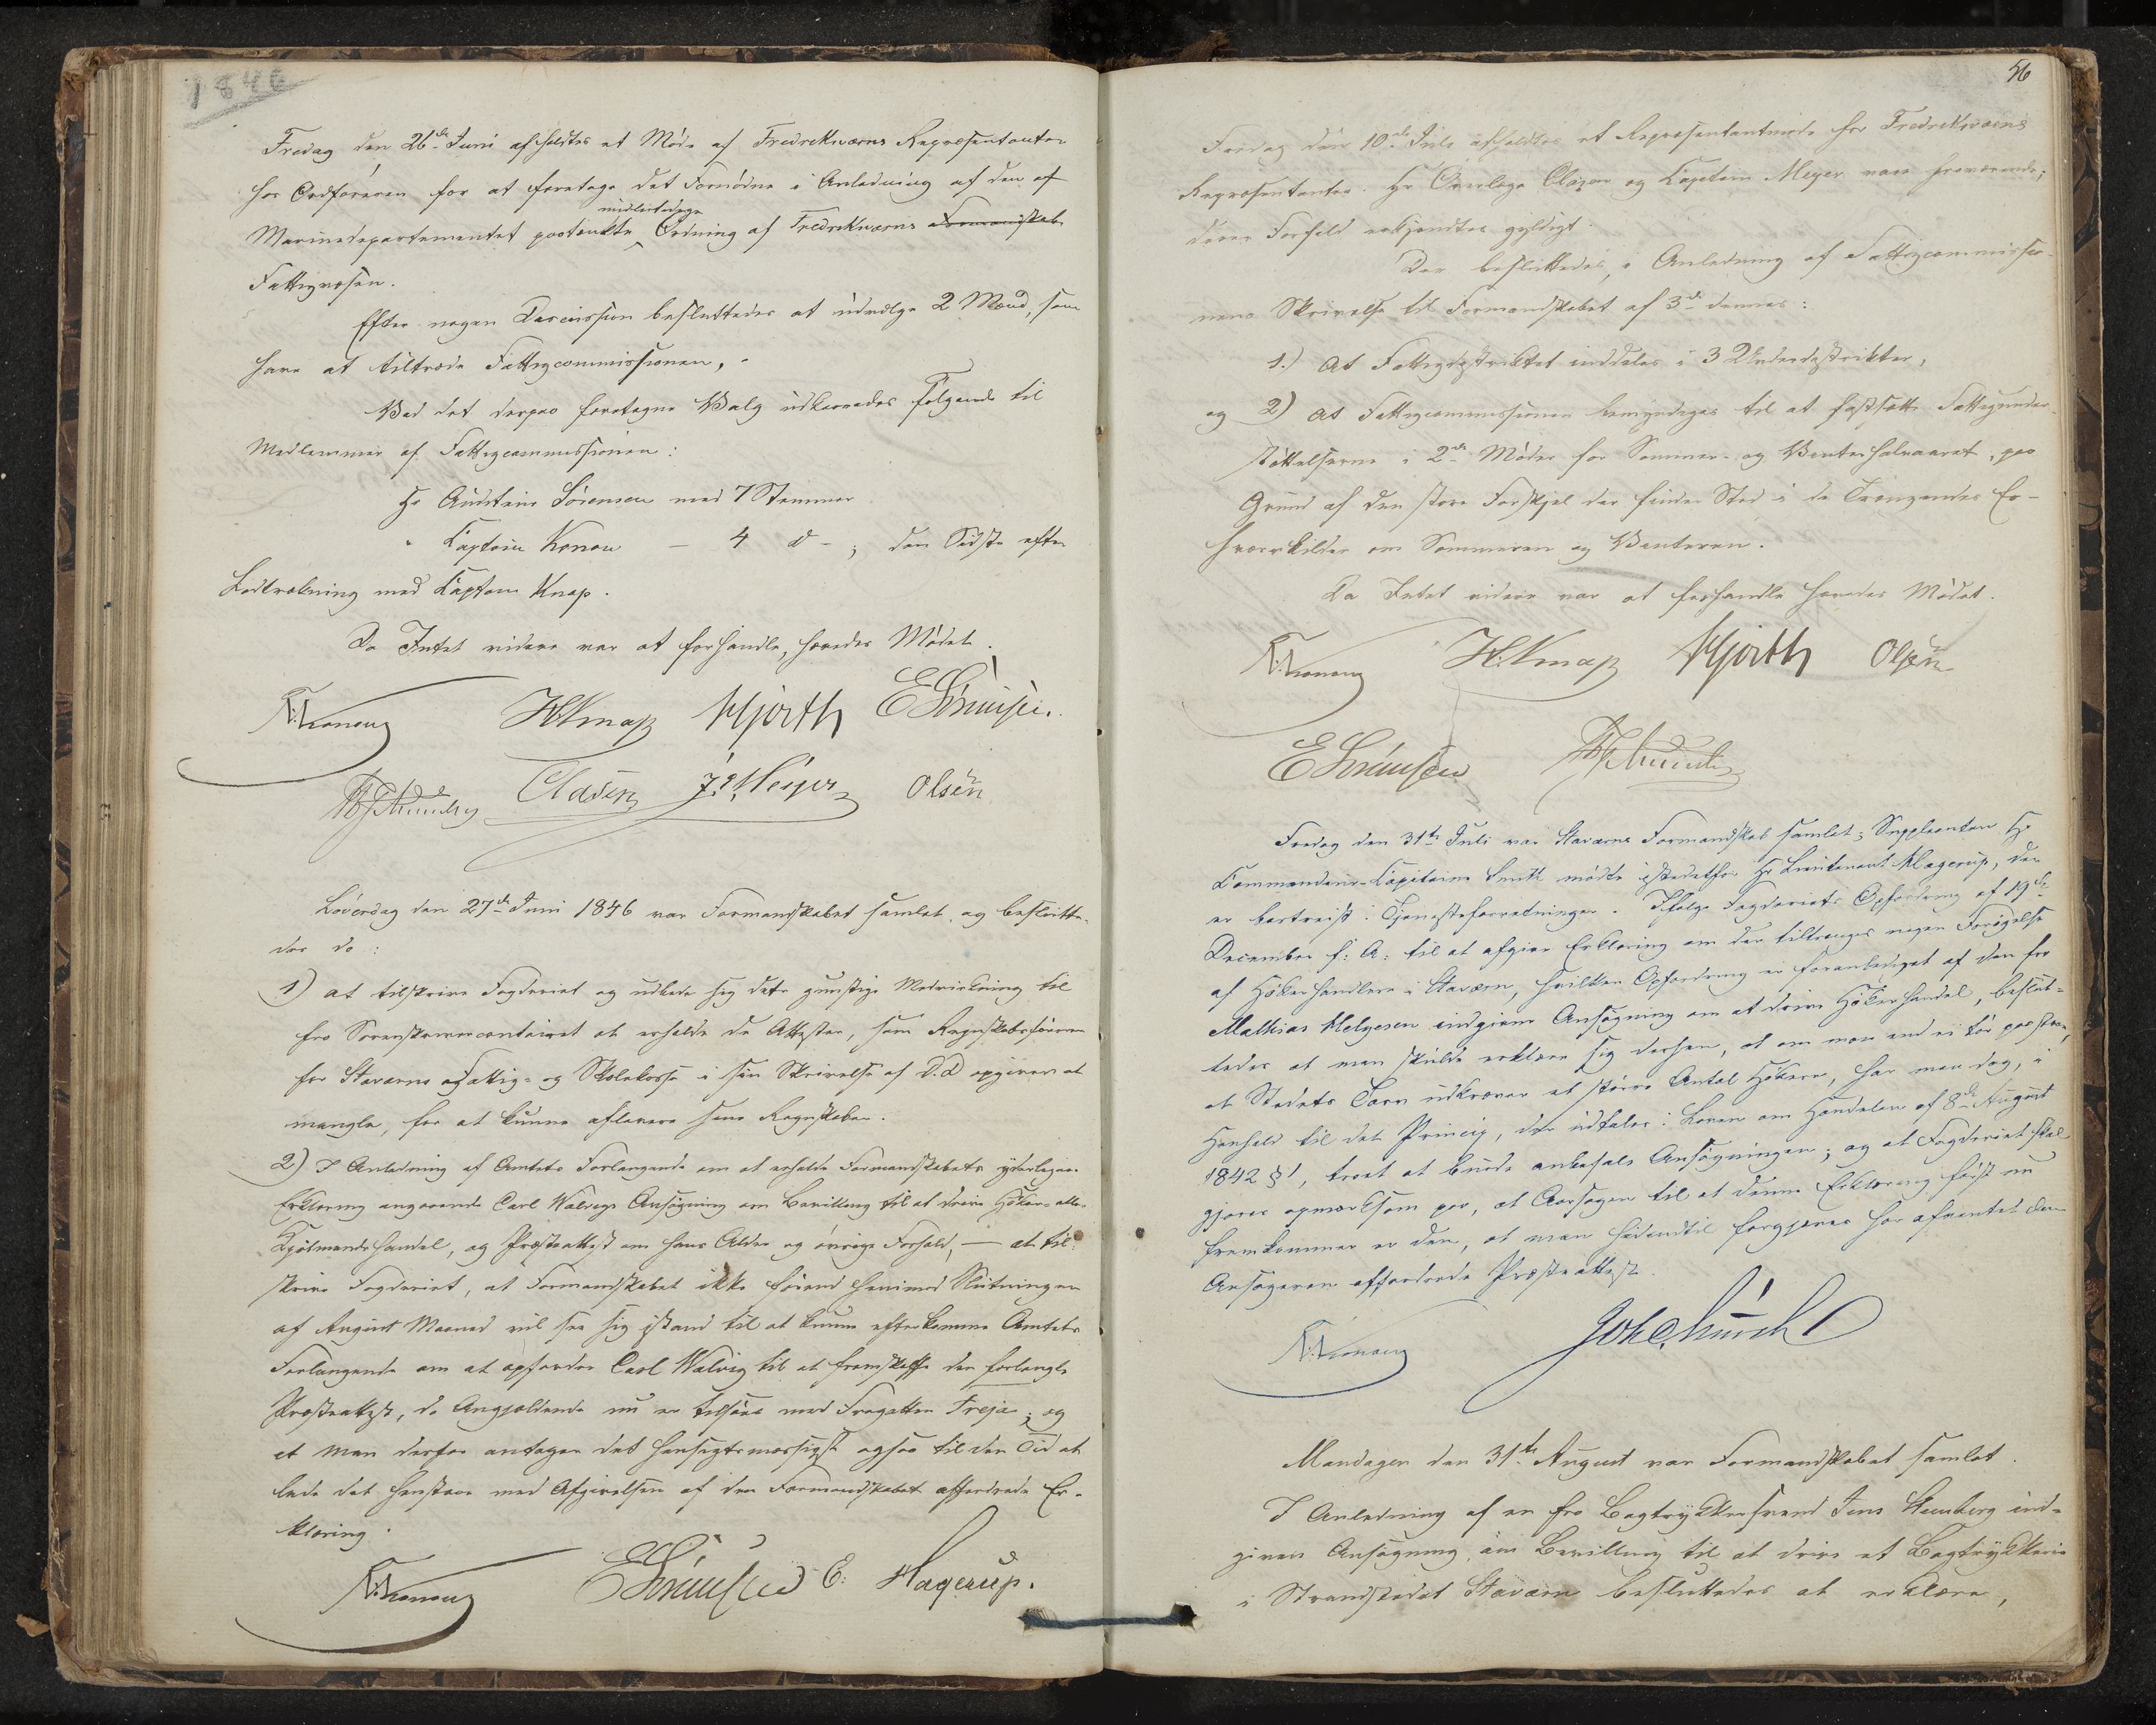 1846
Fredag den 26de Juni afholdtes et Møde af Fredriksværns Repræsentanter
hos Ordføreren for at foretage det Fornødne i Anledning af den af
Marinedepartementet paatænkte midlertidige Ordning af Fredriksværns Formandskab
Fattigvæsen.
Efter nogen Discussion besluttedes at udvælge 2 Mænd, som
have at tiltræde Fattigcommissionen, -
Ved det derpaa foretagne Valg udkaaredes følgende til
Medlemmer af Fattigcommissionen:
Hr Auditeur Sørensen med 7 Stemmer
" Captain Konow — 4 d -; den Sidste efter
Lodtrækning med Captain Knap.
Da Intet videre var at forhandle, hævedes Mødet.
Konow HKnap Hjorth ESørensen.
Clasen Meyer Olsen
Løverdag den 27de Juni 1846 var Formandskabet samlet og beslutte-
des da:
1) at tilskrive Fogderiet og udbede sig dets gunstige Medvirkning til
fra Sorenskrivercontoiret at erholde de Attester, som Regnskabsføreren
for Staværns Fattig- og Skolekasse i sin Skrivelse af D.D opgiver at
mangle, for at kunne aflevere sine Regnskaber.
2) I Anledning af Amtets Forlangende om at erholde Formandskabets yderligere
Erklæring angaaende Carl Walvigs Ansøgning om Bevilling til at drive Høker- eller
Kjøbmandshandel, og Præsteattest om hans Alder og øvrige Forhold, — at til-
skrive Fogderiet, at Formandskabet ikke førend henimod Slutningen
af August Maaned vil see sig istand til at kunne efterkomme Amtets
Forlangende om at opfordre Carl Walvig til at fremskaffe den forlangte
Præsteattest, da Angjældende nu er tilsøes med Fregatten Freja; og
at man derfor antager det hensigtsmæssigst ogsaa til den Tid at
lade det henstaae med Afgivelsen af den Formandskabet affordrede Er-
klæring.
Konow ESørensen C. Hagerup.
56
Fredag den 10de Juli afholdtes et Repræsentantmøde for Fredriksværns
Repræsentanter. Hr Overlæge Clasen og Capitein Meyer vare fraværende;
deres Forfald erkjendtes gyldigt.
Der besluttedes, i Anledning af Fattigcommissio-
nens Skrivelse til Formandskabet af 3de dennes:
1.) at Fattigdistriktet inddeles i 3 Underdistrikter,
og 2) at Fattigcommissionen bemyndiges til at fastsætte Fattigunder-
støttelserne i 2de Møder for Sommer- og Vinterhalvaaret, paa
Grund af den store Forskjel der finder Sted i de Trængendes Er-
hvervskilder om Sommeren og Vinteren.
Da Intet videre var at forhandle hævedes Mødet.
Konow H.Knap Hjorth Olsen
ESørensen
Fredag den 31te Juli var Staværns Formandskab samlet; Suppleanten Hr
Commandeur-Capitaine Smith mødte istedetfor Hr Lieutenant Hagerup, der
er bortreist i Tjenesteforretninger. Ifølge Fogderiets Opfordring af 19de
December f: A: til at afgive Erklæring om der tiltrænges nogen Forøgelse
af Høkerhandlere i Staværn, hvilken Opfordring er foranlediget af den fra
Mathias Helgesen indgivne Ansøgning om at drive Høkerhandel, beslut-
tedes at man skulde erklære sig derhen, at om man end ei tør paastaae,
at Stedets Tarv udkræver et større Antal Høkere, har man dog, i
Henhold til det Princip, der udtales i Loven om Handelen af 8de August
1842 §1, troet at burde anbefale Ansøgningen; og at Fogderiet skal
gjøres opmærksom paa, at Aarsagen til at denne Erklæring først nu
fremkommer er den, at man hidindtil forgjæves har afventet den
Ansøgeren affordrede Præsteattest.
Konow
Mandagen den 31te August var Formandskabet samlet.
I Anledning af en fra Bogtrykkersvend Jens Steenberg ind-
given Ansøgning om Bevilling til at drive et Bogtrykkerie
i Strandstedet Staværn besluttedes at erklære,